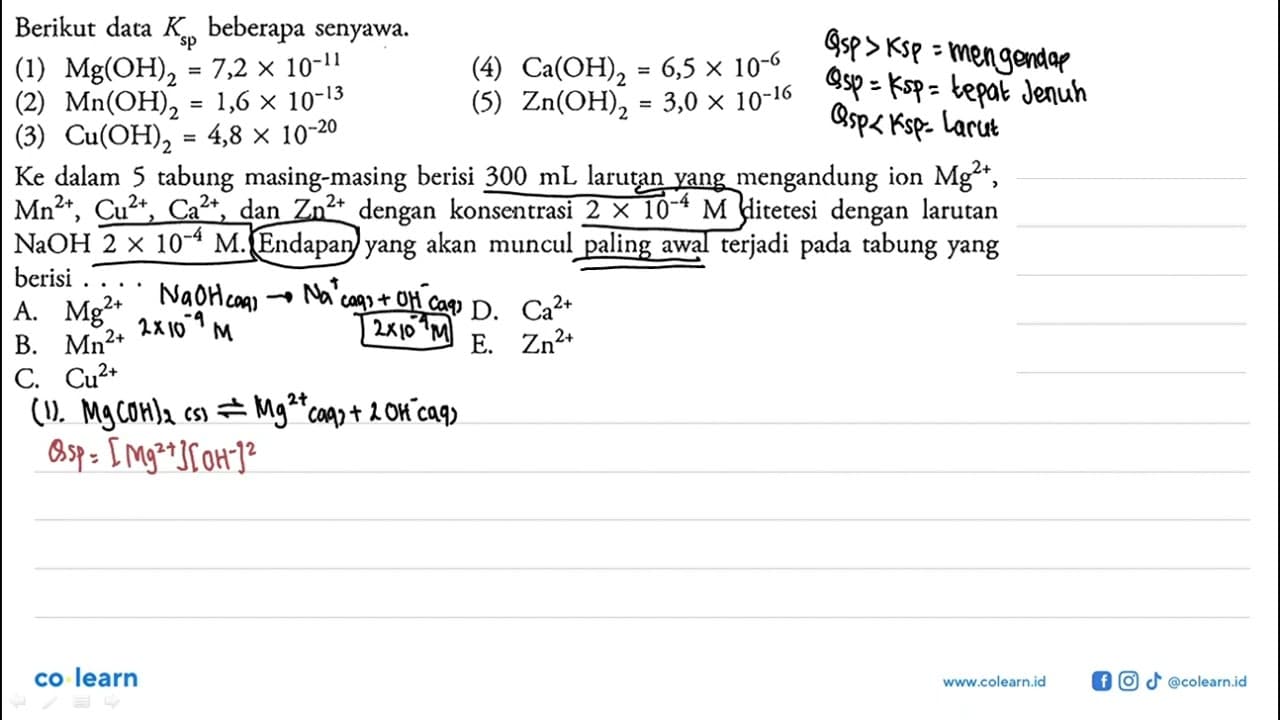 Berikut data Ksp beberapa senyawa.
(1) Mg(OH)₂ = 7,2 × 10⁻¹¹
(2) Mn(OH)₂ = 1,6 × 10⁻¹³
(3) Cu(OH)₂ = 4,8 × 10⁻²⁰
(4) Ca(OH)₂ = 6,5 × 10⁻⁶
(5) Zn(OH)₂ = 3,0 × 10⁻¹⁶
Qsp > Ksp = mengendap
Qsp = Ksp = tepat Jenuh
Qsp < Ksp = Larut
Ke dalam 5 tabung masing-masing berisi 300 mL larutan yang mengandung ion Mg²⁺,
Mn²⁺, Cu²⁺, Ca²⁺, dan Zn²⁺ dengan konsentrasi 2 × 10⁻⁴ M ditetesi dengan larutan
NaOH 2 × 10⁻⁴ M. Endapan yang akan muncul paling awal terjadi pada tabung yang
berisi . . . .
A. Mg²⁺
B. Mn²⁺
C. Cu²⁺
D. Ca²⁺
E. Zn²⁺
NaOH(aq) → Na⁺(aq) + OH⁻(aq)
2×10⁻⁴ M 2×10⁻⁴ M
(1). Mg(OH)₂ (s) ⇌ Mg²⁺(aq) + 2OH⁻(aq)
Qsp = [Mg²⁺][OH⁻]²
co learn
www.colearn.id
@colearn.id